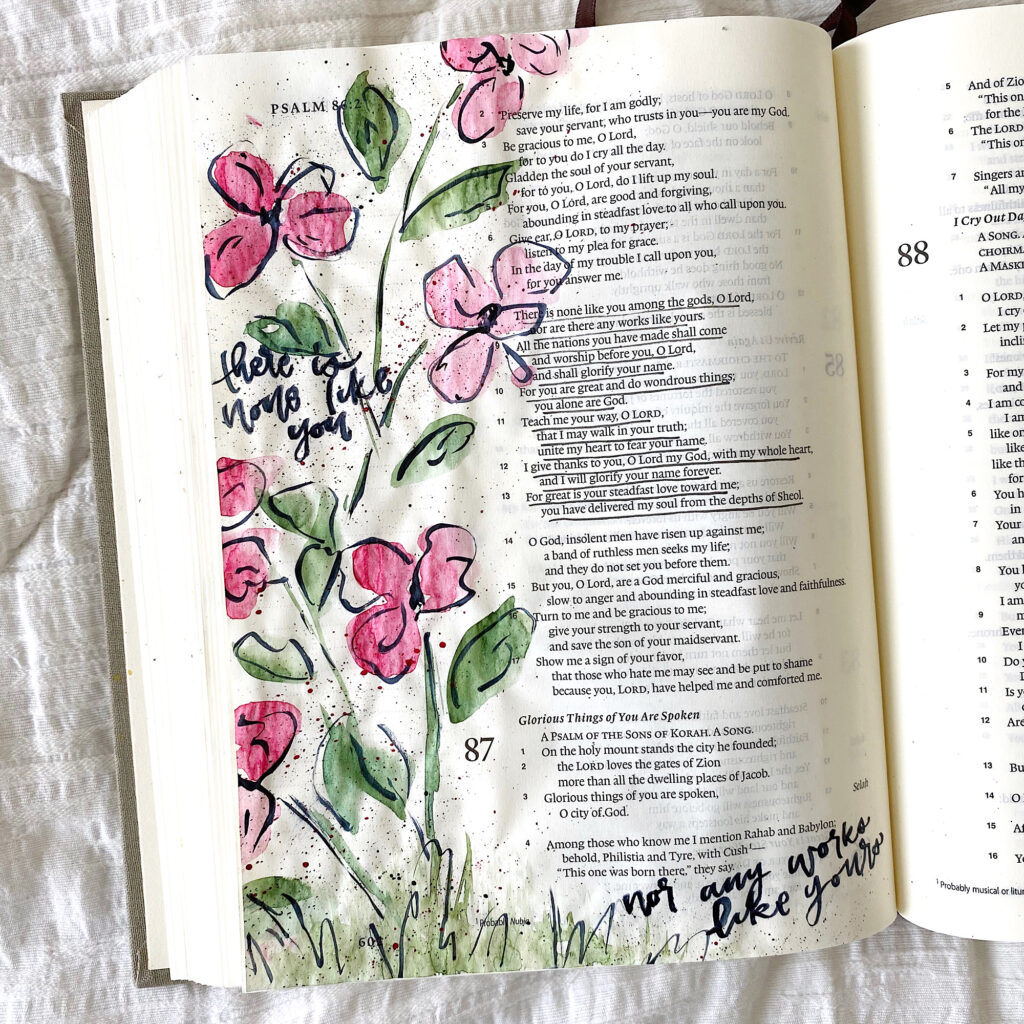 PSALM 86:2
2 Preserve my life, for I am godly;
save your servant, who trusts in you—you are my God.
3 Be gracious to me, O Lord,
for to you do I cry all the day.
Gladden the soul of your servant,
for to you, O Lord, do I lift up my soul.
5 For you, O Lord, are good and forgiving,
abounding in steadfast love to all who call upon you.
6 Give ear, O LORD, to my prayer;
listen to my plea for grace.
7 In the day of my trouble I call upon you,
for you answer me.
There is none like you among the gods, O Lord,
nor are there any works like yours.
9 All the nations you have made shall come
and worship before you, O Lord,
and shall glorify your name.
10 For you are great and do wondrous things;
you alone are God.
11 Teach me your way, O LORD,
that I may walk in your truth;
unite my heart to fear your name.
12 I give thanks to you, O Lord my God, with my whole heart,
and I will glorify your name forever.
13 For great is your steadfast love toward me;
you have delivered my soul from the depths of Sheol.
14 O God, insolent men have risen up against me;
a band of ruthless men seeks my life;
and they do not set you before them.
15 But you, O Lord, are a God merciful and gracious,
slow to anger and abounding in steadfast love and faithfulness.
16 Turn to me and be gracious to me;
give your strength to your servant,
and save the son of your maidservant.
17 Show me a sign of your favor,
that those who hate me may see and be put to shame
because you, LORD, have helped me and comforted me.
Glorious Things of You Are Spoken
87 A PSALM OF THE SONS OF KORAH. A SONG.
1 On the holy mount stands the city he founded;
2 the LORD loves the gates of Zion
more than all the dwelling places of Jacob.
3 Glorious things of you are spoken,
O city of God. Selah
4 Among those who know me I mention Rahab and Babylon;
behold, Philistia and Tyre, with Cush¹—
"This one was born there," they say.
¹ Probably Nubia
there is
none like
you
nor any works
like yours
5 And of Zion
"This on
for the
6 The LORD
"This one
7 Singers an
"All my
I Cry Out Da
88 A SONG. A
CHOIRM
A MASKI
1 O LORD,
I cry
2 Let my
incli
3 For my
and
4 I am co
I am
5 like on
like
like th
for
6 You h
in
7 Your
an
8 You h
yo
I am
9 m
Ever
I
10 Do y
D
11 Is y
o
12 Are
13 Bu
i
14 O
15 Af
16 Yo
¹ Probably musical or litur